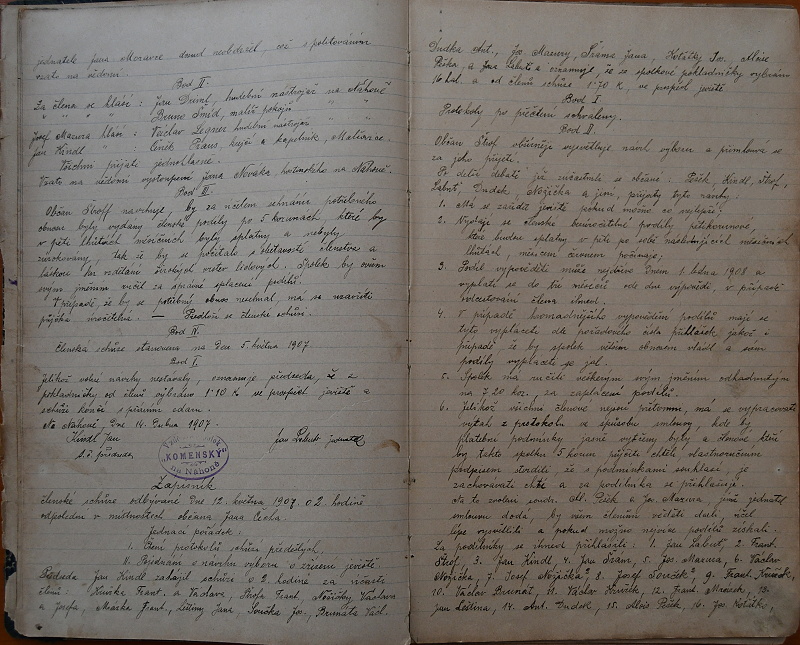 jednatele Jana Moravce domů neobdržel, což s politováním
vzato na vědomí.
Bod II.
Za člena se hlásí: Jan Dreml, hudební nástrojař na Náhoně
" " " " Bruno Šmíd, malíř pokojů " "
Josef Mazura hlásí: Václav Legner hudební nástrojař " "
Jan Kindl " : Čeněk Praus, krejčí a kapelník, Matiarce.
Všichni přijati jednohlasně.
Vzato na vědomí vystoupení Jana Nováka, hostinského na Náhoně.
Bod III.
Občan Štrof navrhuje, by za účelem sehnání potřebného
obnosu byly vydány členské podíly po 5 korunách, které by
v pěti lhůtách měsíčních byly splatny a nebyly
zúrokovány, tak že by se počítalo s obětavostí členstva a
láskou ku vzdělání širokých vrstev lidových. Spolek by ovšem
svým jměním ručil za správné splacení podílů.
V případě, že by se potřebný obnos nesehnal, má se uzavříti
půjčka
Předloží se členské schůzi.
Bod IV.
Členská schůze stanovena na den 5. května 1907.
Bod V.
Jelikož volné návrhy nestávaly, oznamuje předseda, že z
pokladničky od členů vybráno 1·10 K ve prospěch jeviště a
schůzi končí s přáním zdaru.
Na Náhoně, dne 14. dubna 1907.
Kindl Jan
t. č. předseda
Jan Labuť jednatel
"KOMENSKÝ"
na Náhoně
Zápisník
členské schůze odbývané dne 12. května 1907 o 2. hodině
odpolední v místnostech občana Jana Čecha.
Jednací pořádek:
I. Čtení protokolů schůzí předešlých.
II. Pojednání o návrhu výboru o zřízení jeviště.
Předseda Jan Kindl zahájil schůzi o 2. hodině za účasti
členů: Frant. a Václava, Štrofa Frant., Nosičky Václava
a Josefa, Frant., Leštiny Jana, Součka Jos., Brunáta Václ.
Dudka Ant., Jos. Mazury, Šrama Jana, Košťálky Jos., Aloise
Pěška, a Jana Labutě a oznamuje, že ze spolkové pokladničky vybráno
16 hal. a od členů schůze 1·70 K, ve prospěch jeviště
Bod I
Protokoly po přečtení schváleny.
Bod II.
Občan Štrof obšírněji vysvětluje návrh výboru a přimlouvá se
za jeho přijetí.
Po delší debatě již zúčastnili se občané: Pěšek, Kindl, Štrof,
Labuť, Dudek, Nosička a jiní, přijaty tyto návrhy:
1. Má se zaříditi jeviště pokud možno co nejlepší;
2. Vydají se členské bezúročitelné podíly pětikorunové,
které budou splatny v pěti po sobě následujících měsíčních
lhůtách, měsícem červnem počínaje;
3. Podíl vypověděti může nejdříve dnem 1. ledna 1908 a
vyplatí se do tří měsíců ode dne výpovědi, v případě
odcestování člena ihned.
4. V případě hromadnějšího vypovědění podílů mají se
tyto vypláceti dle pořadového čísla přihlášek, jakož i
případě, že by spolek větším obnosem vládl a sám
podíly vypláceti
5. Spolek má ručiti veškerým svým jměním odhadnutým
na 720 kor., za zaplacení podílů.
6. Jelikož všichni členové nejsou přítomni, má se vypracovati
výtah z protokolu ve způsobu smlouvy, kde by
platební podmínky jasně vytčeny byly a členové kteří
by takto spolku 5 korun půjčiti chtěli vlastnoručním
podpisem stvrdili že s podmínkami souhlasí, je
zachovávati chtí a za podílníka se přihlašují.
Na to zvoleni soudr. Al. Pěšek a Jos. Mazura, jimž jednatel
smlouvu dodá, by všem členům věděti dali, účel
lépe vysvětlili a pokud možno nejvíce podílů získali.
Za podílníky se ihned přihlásili: 1. Jan Labuť, 2. Frant.
Štrof, 3. Jan Kindl, 4. Jan Šram, 5. Jos. Mazura, 6. Václav
Nosička, 7. Josef Nosička, 8. Josef Souček, 9. Frant.
10. Václav Brunát, 11. Václav 12. Frant. 13.
Jan Leština, 14. Ant. Dudek, 15. Alois Pěšek, 16. Jos